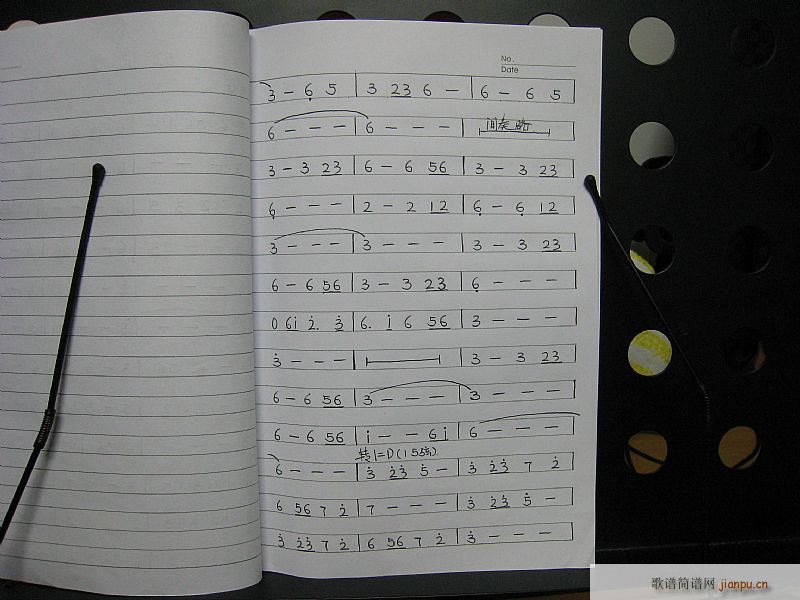 No.
Date
3 - 6̣ 5 | 3 2̲3̲ 6 - | 6 - 6 5
6 - - - | 6 - - - | 间奏
3 - 3 2̲3̲ | 6 - 6 5̲6̲ | 3 - 3 2̲3̲
6̣ - - - | 2 - 2 1̲2̲ | 6̣ - 6̣ 1̲2̲
3 - - - | 3 - - - | 3 - 3 2̲3̲
6 - 6 5̲6̲ | 3 - 3 2̲3̲ | 6̣ - - -
0 6̲i̲ 2̇. 3̲̇ | 6. i̲ 6 5̲6̲ | 3 - - -
3̇ - - - | | 3 - 3 2̲3̲
6 - 6 5̲6̲ | 3 - - - | 3 - - -
6 - 6 5̲6̲ | i - - 6̲i̲ | 6 - - -
转1=D(153弦)
6 - - - | 3̇ 2̲̇3̲̇ 5̇ - | 3̇ 2̲̇3̲̇ 7 2̇
6 5̲6̲ 7 2̇ | 7 - - - | 3̇ 2̲̇3̲̇ 5̇ -
3̇ 2̲̇3̲̇ 7 2̇ | 6 5̲6̲ 7 2̇ | 3̇ - - -
歌谱简谱网 jianpu.cn